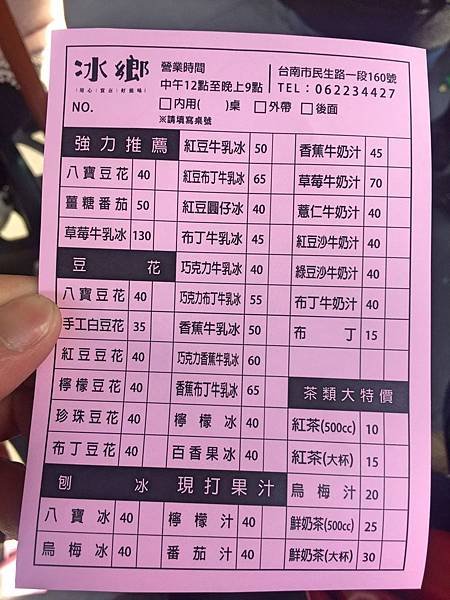 冰鄉
用心|實在|好滋味
營業時間
中午12點至晚上9點
台南市民生路一段160號
TEL:062234427
NO.
□內用(　)桌 □外帶 □後面
※請填寫桌號
強力推薦
八寶豆花 40
薑糖番茄 50
草莓牛乳冰 130
豆花
八寶豆花 40
手工白豆花 35
紅豆豆花 40
檸檬豆花 40
珍珠豆花 40
布丁豆花 40
刨冰
八寶冰 40
烏梅冰 40
紅豆牛乳冰 50
紅豆布丁牛乳冰 65
紅豆圓仔冰 40
布丁牛乳冰 45
巧克力牛乳冰 40
巧克力布丁牛乳冰 55
香蕉牛乳冰 50
巧克力香蕉牛乳冰 60
香蕉布丁牛乳冰 65
檸檬冰 40
百香果冰 40
現打果汁
檸檬汁 40
番茄汁 40
香蕉牛奶汁 45
草莓牛奶汁 70
薏仁牛奶汁 40
紅豆沙牛奶汁 40
綠豆沙牛奶汁 40
布丁牛奶汁 40
布丁 15
茶類大特價
紅茶(500cc) 10
紅茶(大杯) 15
烏梅汁 20
鮮奶茶(500cc) 25
鮮奶茶(大杯) 30